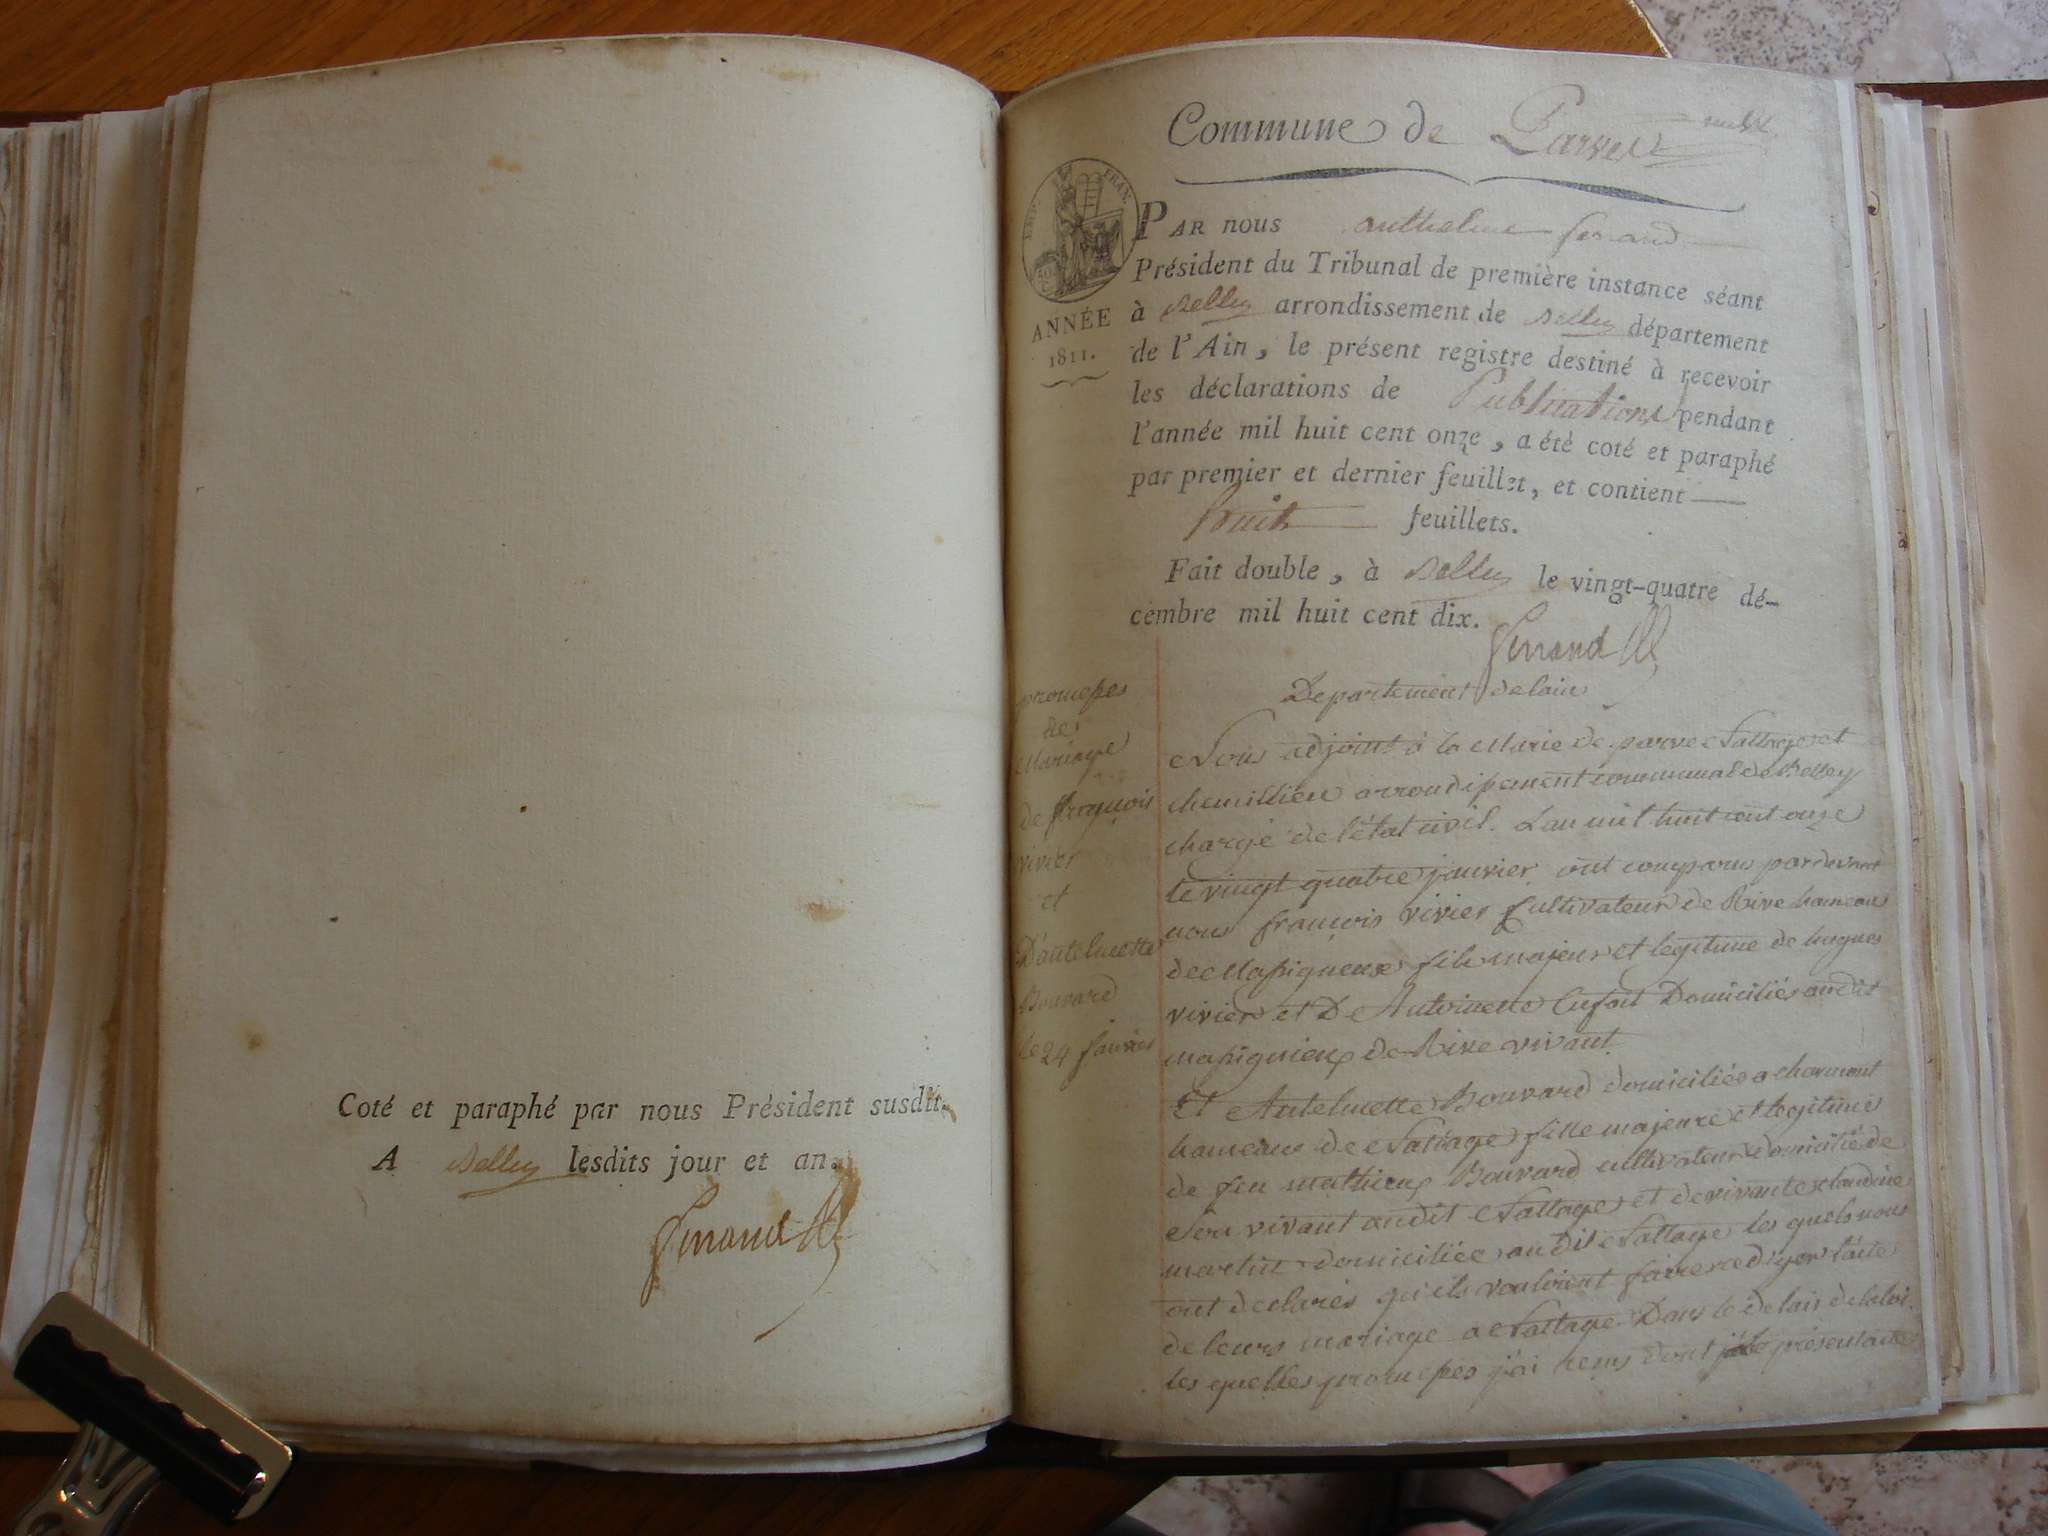 Coté et paraphé par nous Président susdit.
A Belley lesdits jour et an.
Ferrand
Commune de Parves
EMP. FRAN.
ANNÉE
1811.
PAR nous anthelme ferrand
Président du Tribunal de première instance séant
à Belley arrondissement de Belley département
de l'Ain, le présent registre destiné à recevoir
les déclarations de Publications pendant
l'année mil huit cent onze, a été coté et paraphé
par premier et dernier feuillet, et contient
huit feuillets.
Fait double, à Belley le vingt-quatre dé-
cembre mil huit cent dix.
Ferrand
promesses
de
Mariage
de françois
vivier
et
D'antelmette
Bouvard
le 24 Janvier
Departement delain
Nous adjoint a la Marie de parve Nattage et
chemillieu arrondissement communal de Belley
chargé de l'état civil. Lan mil huit cent onze
le vingt quatre janvier ont comparus pardevant
nous françois vivier Cultivateur de Rive hameau
de Massigneux fils majeur et legitime de hugues
vivier et De Antoinette Domiciliés audit
massignieux de Rive vivant
Et Antelmette Bouvard domiciliée a charmont
hameau de Nattage fille majeure et legitime
de feu mathieux Bouvard cultivateur domicilié de
son vivant audit Nattage et de vivante claudine
martin domiciliée audit Nattage les quels nous
ont declarés qu'ils vouloient faire rediger l'acte
de leurs mariage a Nattage Dans le delais de la loi.
les quelles promesses j'ai dont présent acte